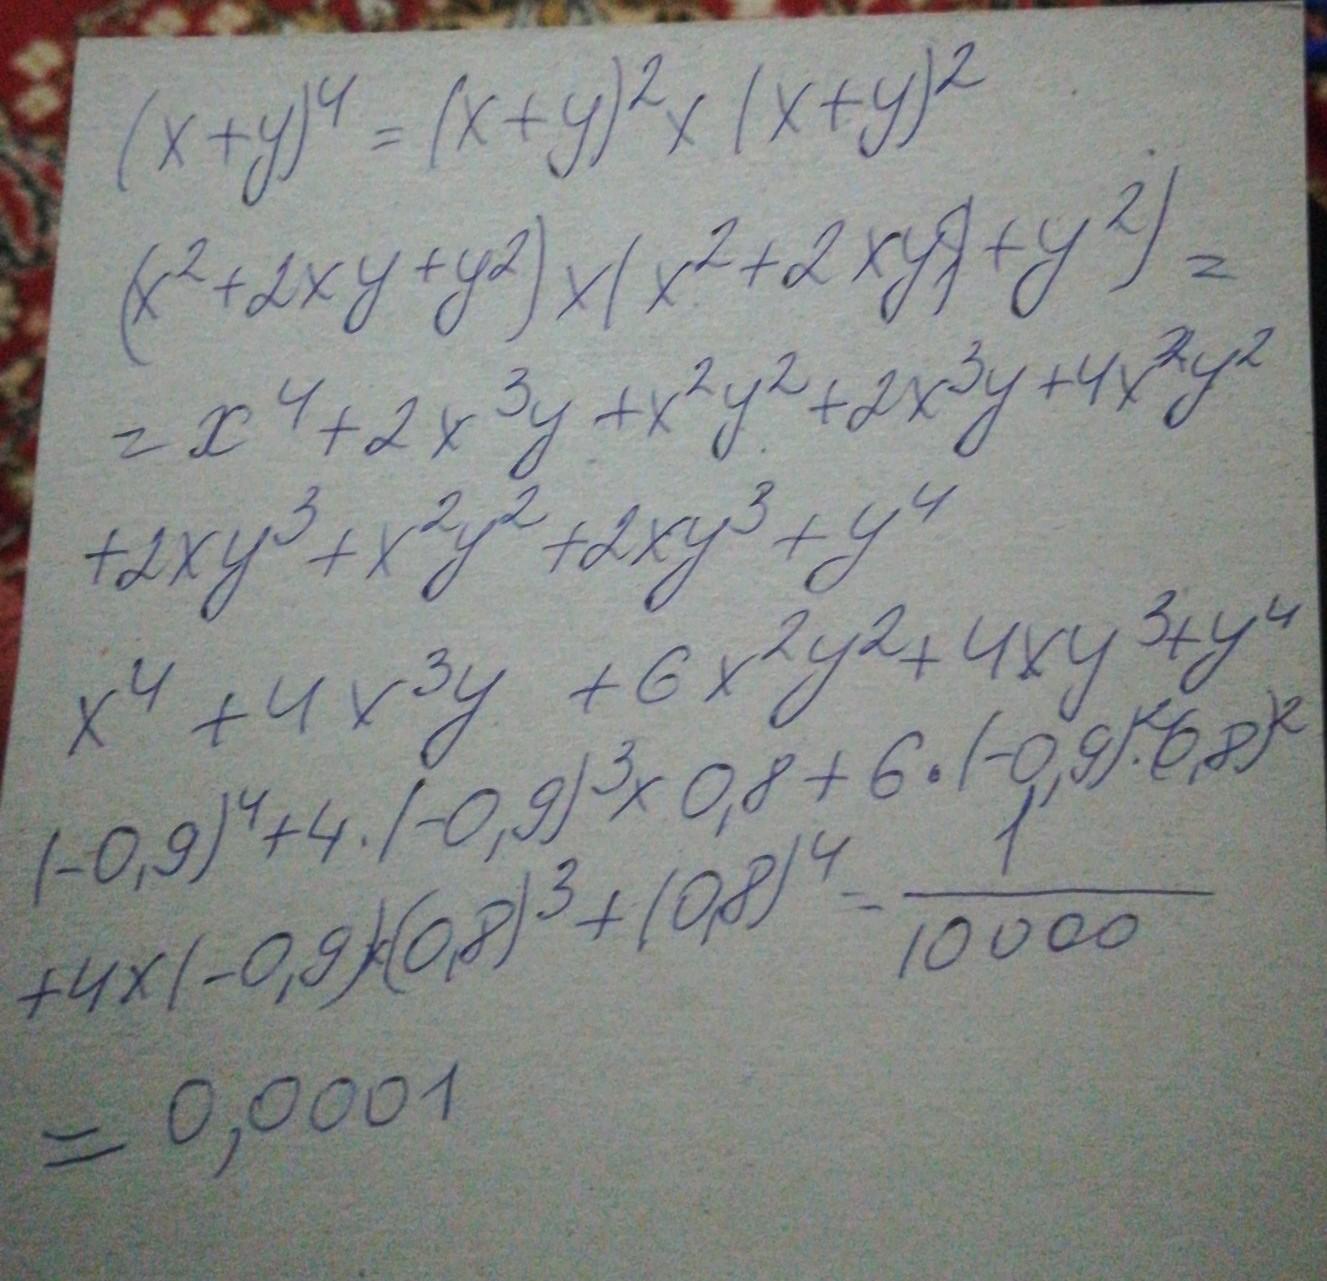 (x+y)⁴=(x+y)²x(x+y)²
(x²+2xy+y2)x(x²+2xy)+y²)=
=x⁴+2x³y+x²y²+2x³y+4x²y²
+2xy³+x²y²+2xy³+y⁴
x⁴+4x³y+6x²y²+4xy³+y⁴
(-0,9)⁴+4·(-0,9)³x0,8+6·(-0,9)²·(0,8)²
+4x(-0,9)·(0,8)³+(0,8)⁴=1/10000
=0,0001